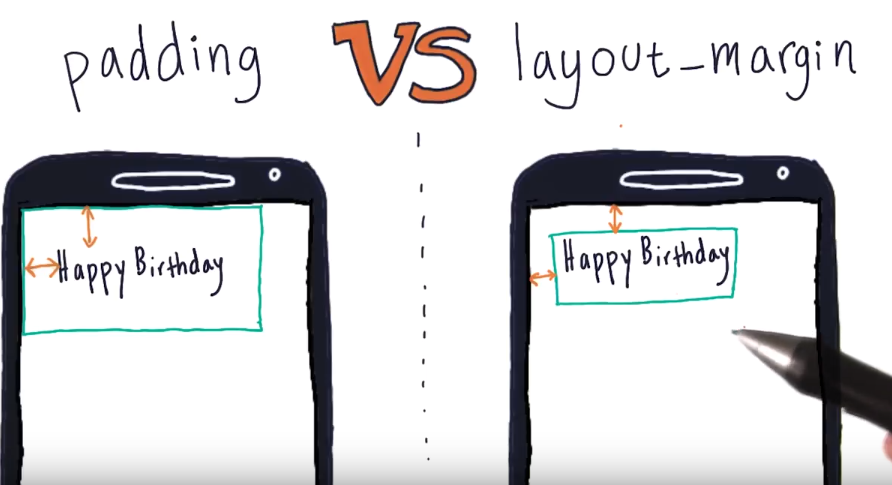 padding VS layout_margin
Happy Birthday
Happy Birthday